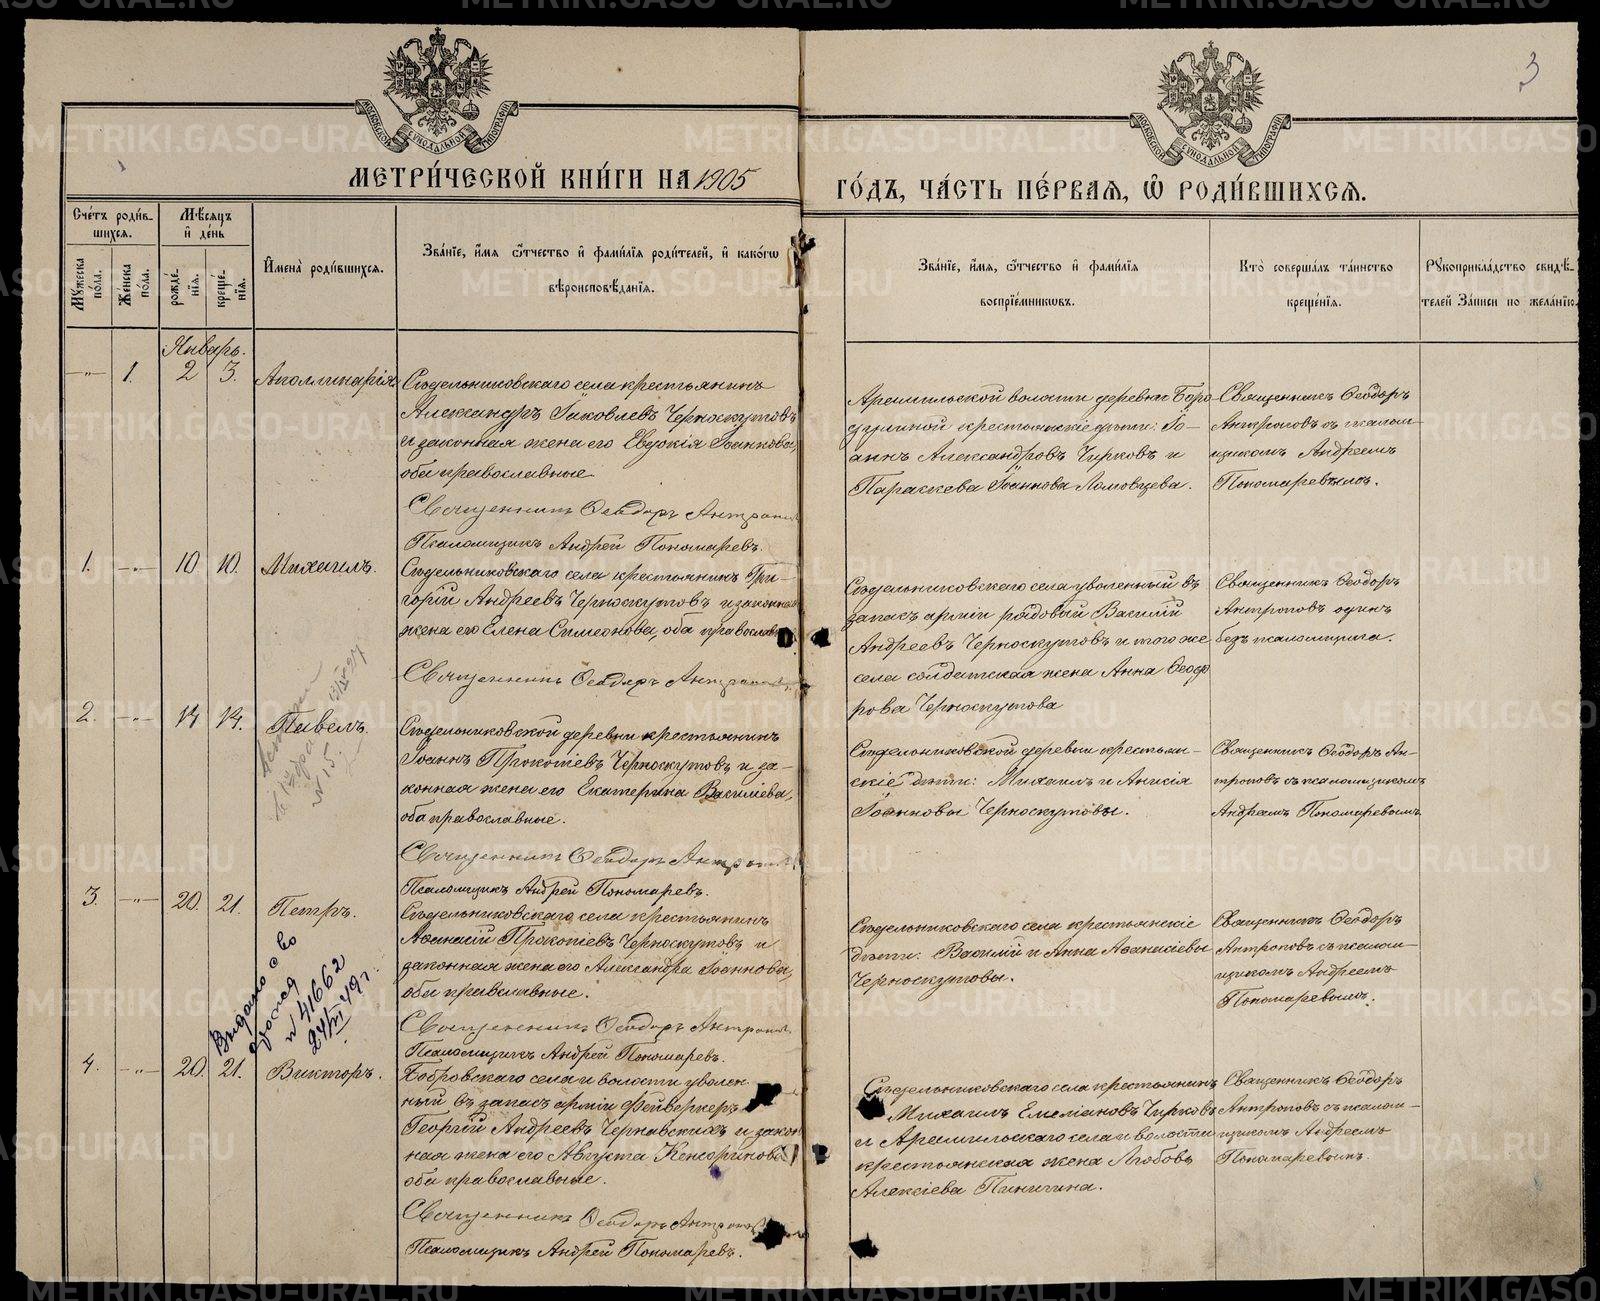 3
МОСКОВСКОЙ СѴНОДАЛЬНОЙ ТИПОГРАФІИ
МОСКОВСКОЙ СѴНОДАЛЬНОЙ ТИПОГРАФІИ
МЕТРИ́ЧЕСКОЙ КНИ́ГИ НА 1905
ГО́ДЪ, ЧА́СТЬ ПЕ́РВАЯ, Ѡ РОДИ́ВШИХСЯ.
Сче́тъ роди́в-
шихся.
Мѣ́сяцъ
и҆ де́нь
Мꙋ́жеска
по́ла.
Же́нска
по́ла.
рожде́-
нїѧ.
креще́-
нїѧ.
И҆мена̀ роди́вшихся.
Зва́нїе, и҆́мя ѻ҆́тчество и҆ фами́лїя роди́телей, и҆ како́гѡ
вѣроисповѣ́данїя.
Зва́нїе, и҆́мя, ѻ҆́тчество и҆ фами́лїя
воспрїе́мниковъ.
Кто̀ соверша́лъ та́инство
креще́нїя.
Рꙋкоприкла́дство свидѣ́-
телей За́писи по жела́нїю.
Январь.
—"— 1. 2 3. Аполлинарія
Сѣдельниковскаго села крестьянинъ
Александръ Іаковлевъ Черноскутовъ
и законная жена его Евдокія Іоаннова,
оба православные
Священникъ Ѳеодоръ Антропов
Псаломщикъ Андрей Пономаревъ.
Арамильской волости деревни Боро-
дулиной крестьянскіе дѣти: Іо-
аннъ Александровъ Чирковъ и
Параскева Іоаннова Ломовцева.
Священникъ Ѳеодоръ
Антроповъ съ псалом-
щикомъ Андреемъ
Пономаревымъ.
1. —"— 10. 10. Михаилъ.
Сѣдельниковскаго села крестьянинъ Гри-
горій Андреевъ Черноскутовъ и законная
жена его Елена Симеонова, оба православн
Священникъ Ѳеодоръ Антропов
Сѣдельниковскаго села уволенный въ
запасъ арміи рядовый Василій
Андреевъ Черноскутовъ и того же
села солдатская жена Анна Ѳеодо
рова Черноскутова
Священникъ Ѳеодоръ
Антроповъ одинъ
безъ псаломщика.
2. —"— 14. 14. Павелъ.
№ 15
Сѣдельниковской деревни крестьянинъ
Іоаннъ Прокопіевъ Черноскутовъ и за-
конная жена его Екатерина Василіева,
оба православные.
Священникъ Ѳеодоръ Антропов
Псаломщикъ Андрей Пономаревъ.
Сѣдельниковской деревни крестьян-
скіе дѣти: Михаилъ и Анисія
Іоанновы Черноскутовы.
Священникъ Ѳеодоръ Ан-
троповъ съ псаломщикомъ
Андреемъ Пономаревымъ
3. —"— 20. 21. Петръ.
Выдано св во
№ 41662
24/VI 49 г.
Сѣдельниковскаго села крестьянинъ
Аѳанасій Прокопіевъ Черноскутовъ и
законная жена его Александра Іоаннова,
оба православные.
Священникъ Ѳеодоръ Антропов
Псаломщикъ Андрей Пономаревъ.
Сѣдельниковскаго села крестьянскіе
дѣти: Василій и Анна Аѳанасіевы
Черноскутовы.
Священникъ Ѳеодоръ
Антроповъ съ псалом-
щикомъ Андреемъ
Пономаревымъ.
4. —"— 20. 21. Викторъ.
Бобровскаго села и волости уволен-
ный въ запасъ арміи фейверкеръ
Георгій Андреевъ Чернавскихъ и закон
ная жена его Августа Кенсоринова
оба православные.
Священникъ Ѳеодоръ Антропов
Псаломщикъ Андрей Пономаревъ.
Сѣдельниковскаго села крестьянинъ
Михаилъ Емеліановъ Чирковъ
и Арамильскаго села и волости
крестьянская жена Любовь
Алексіева Пиничина.
Священникъ Ѳеодоръ
Антроповъ съ псалом-
щикомъ Андреемъ
Пономаревымъ.
METRIKI.GASO-URAL.RU